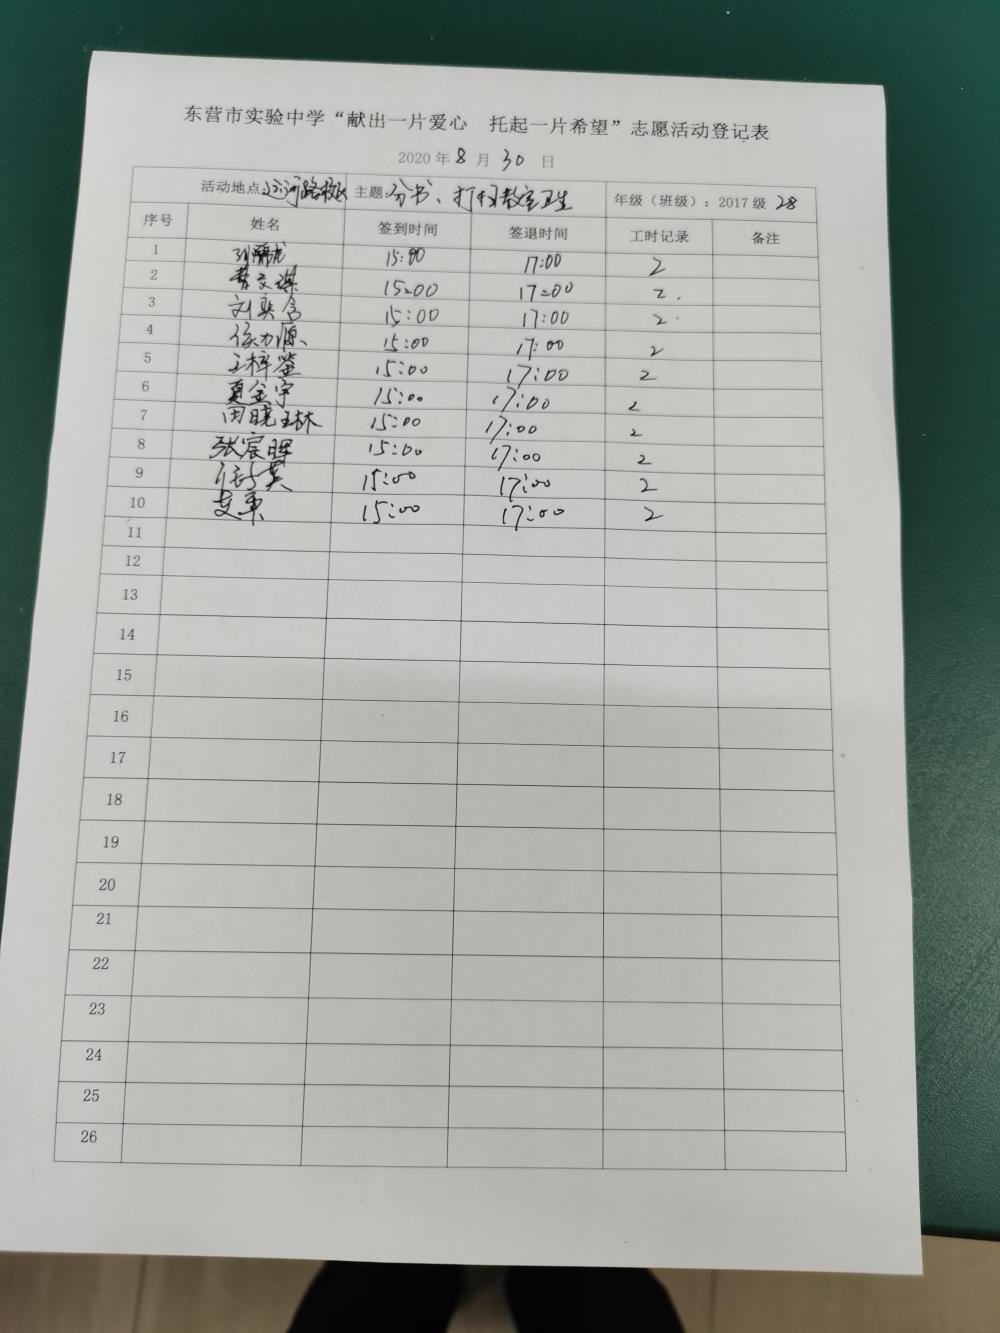 东营市实验中学“献出一片爱心 托起一片希望”志愿活动登记表
2020 年 8 月 30 日
活动地点:运河路校区 主题:分书、打扫教室卫生 年级（班级）：2017 级 28
序号 姓名 签到时间 签退时间 工时记录 备注
1 15:00 17:00 2
2 15:00 17:00 2
3 刘奕含 15:00 17:00 2
4 力源 15:00 17:00 2
5 王梓鉴 15:00 17:00 2
6 夏金宇 15:00 17:00 2
7 田晓琳 15:00 17:00 2
8 张宸晖 15:00 17:00 2
9 英 15:00 17:00 2
10 15:00 17:00 2
11
12
13
14
15
16
17
18
19
20
21
22
23
24
25
26